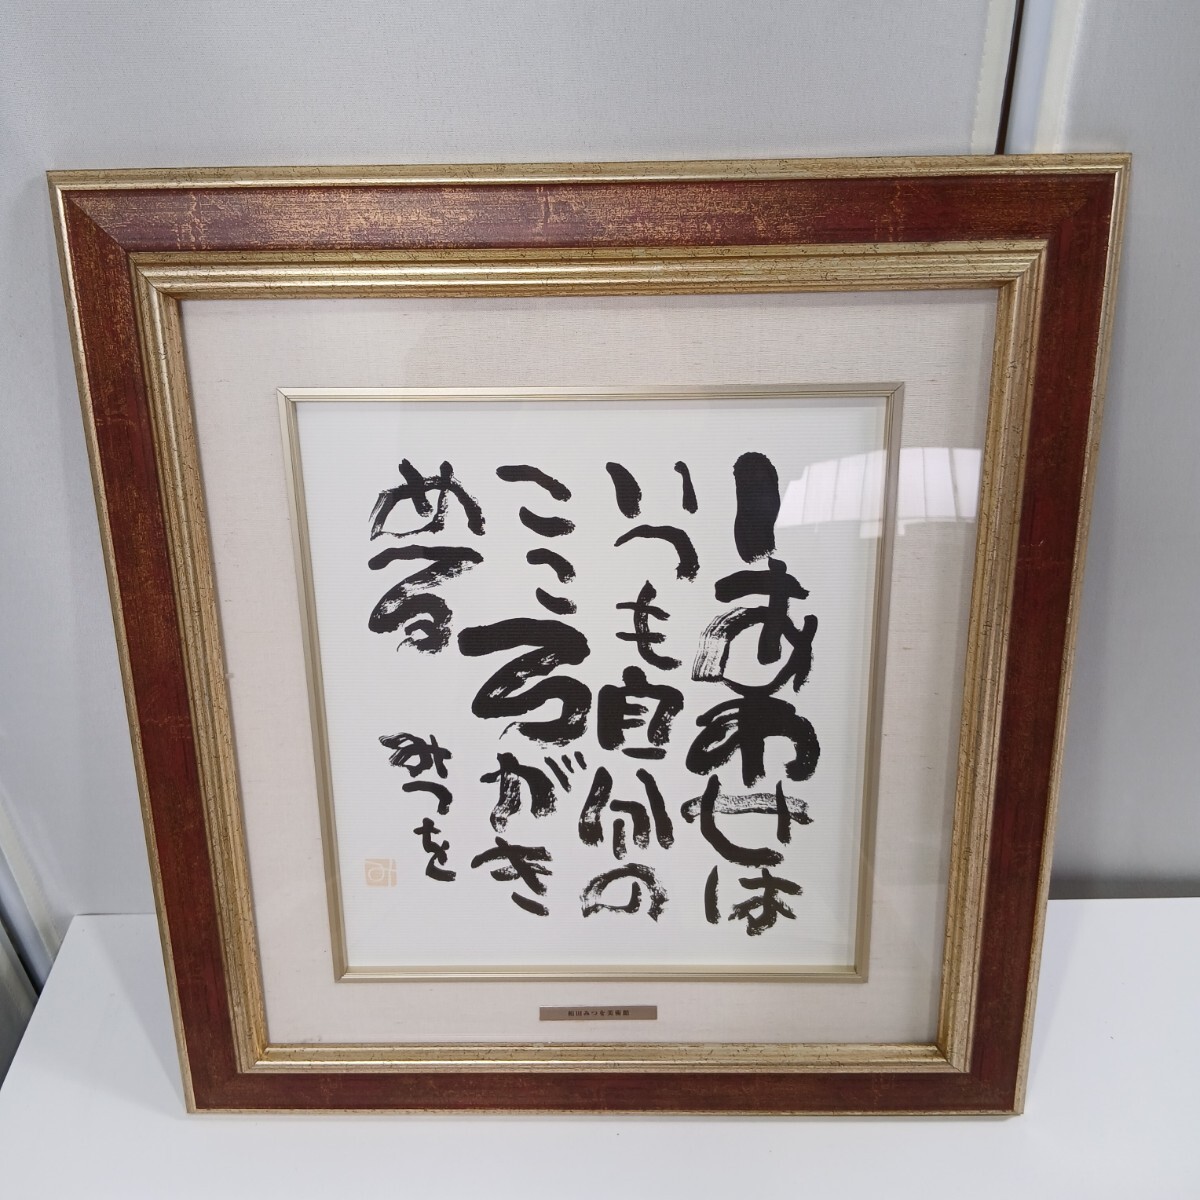 しあわせは
いつも自分の
こころがき
める
みつを
相田みつを美術館